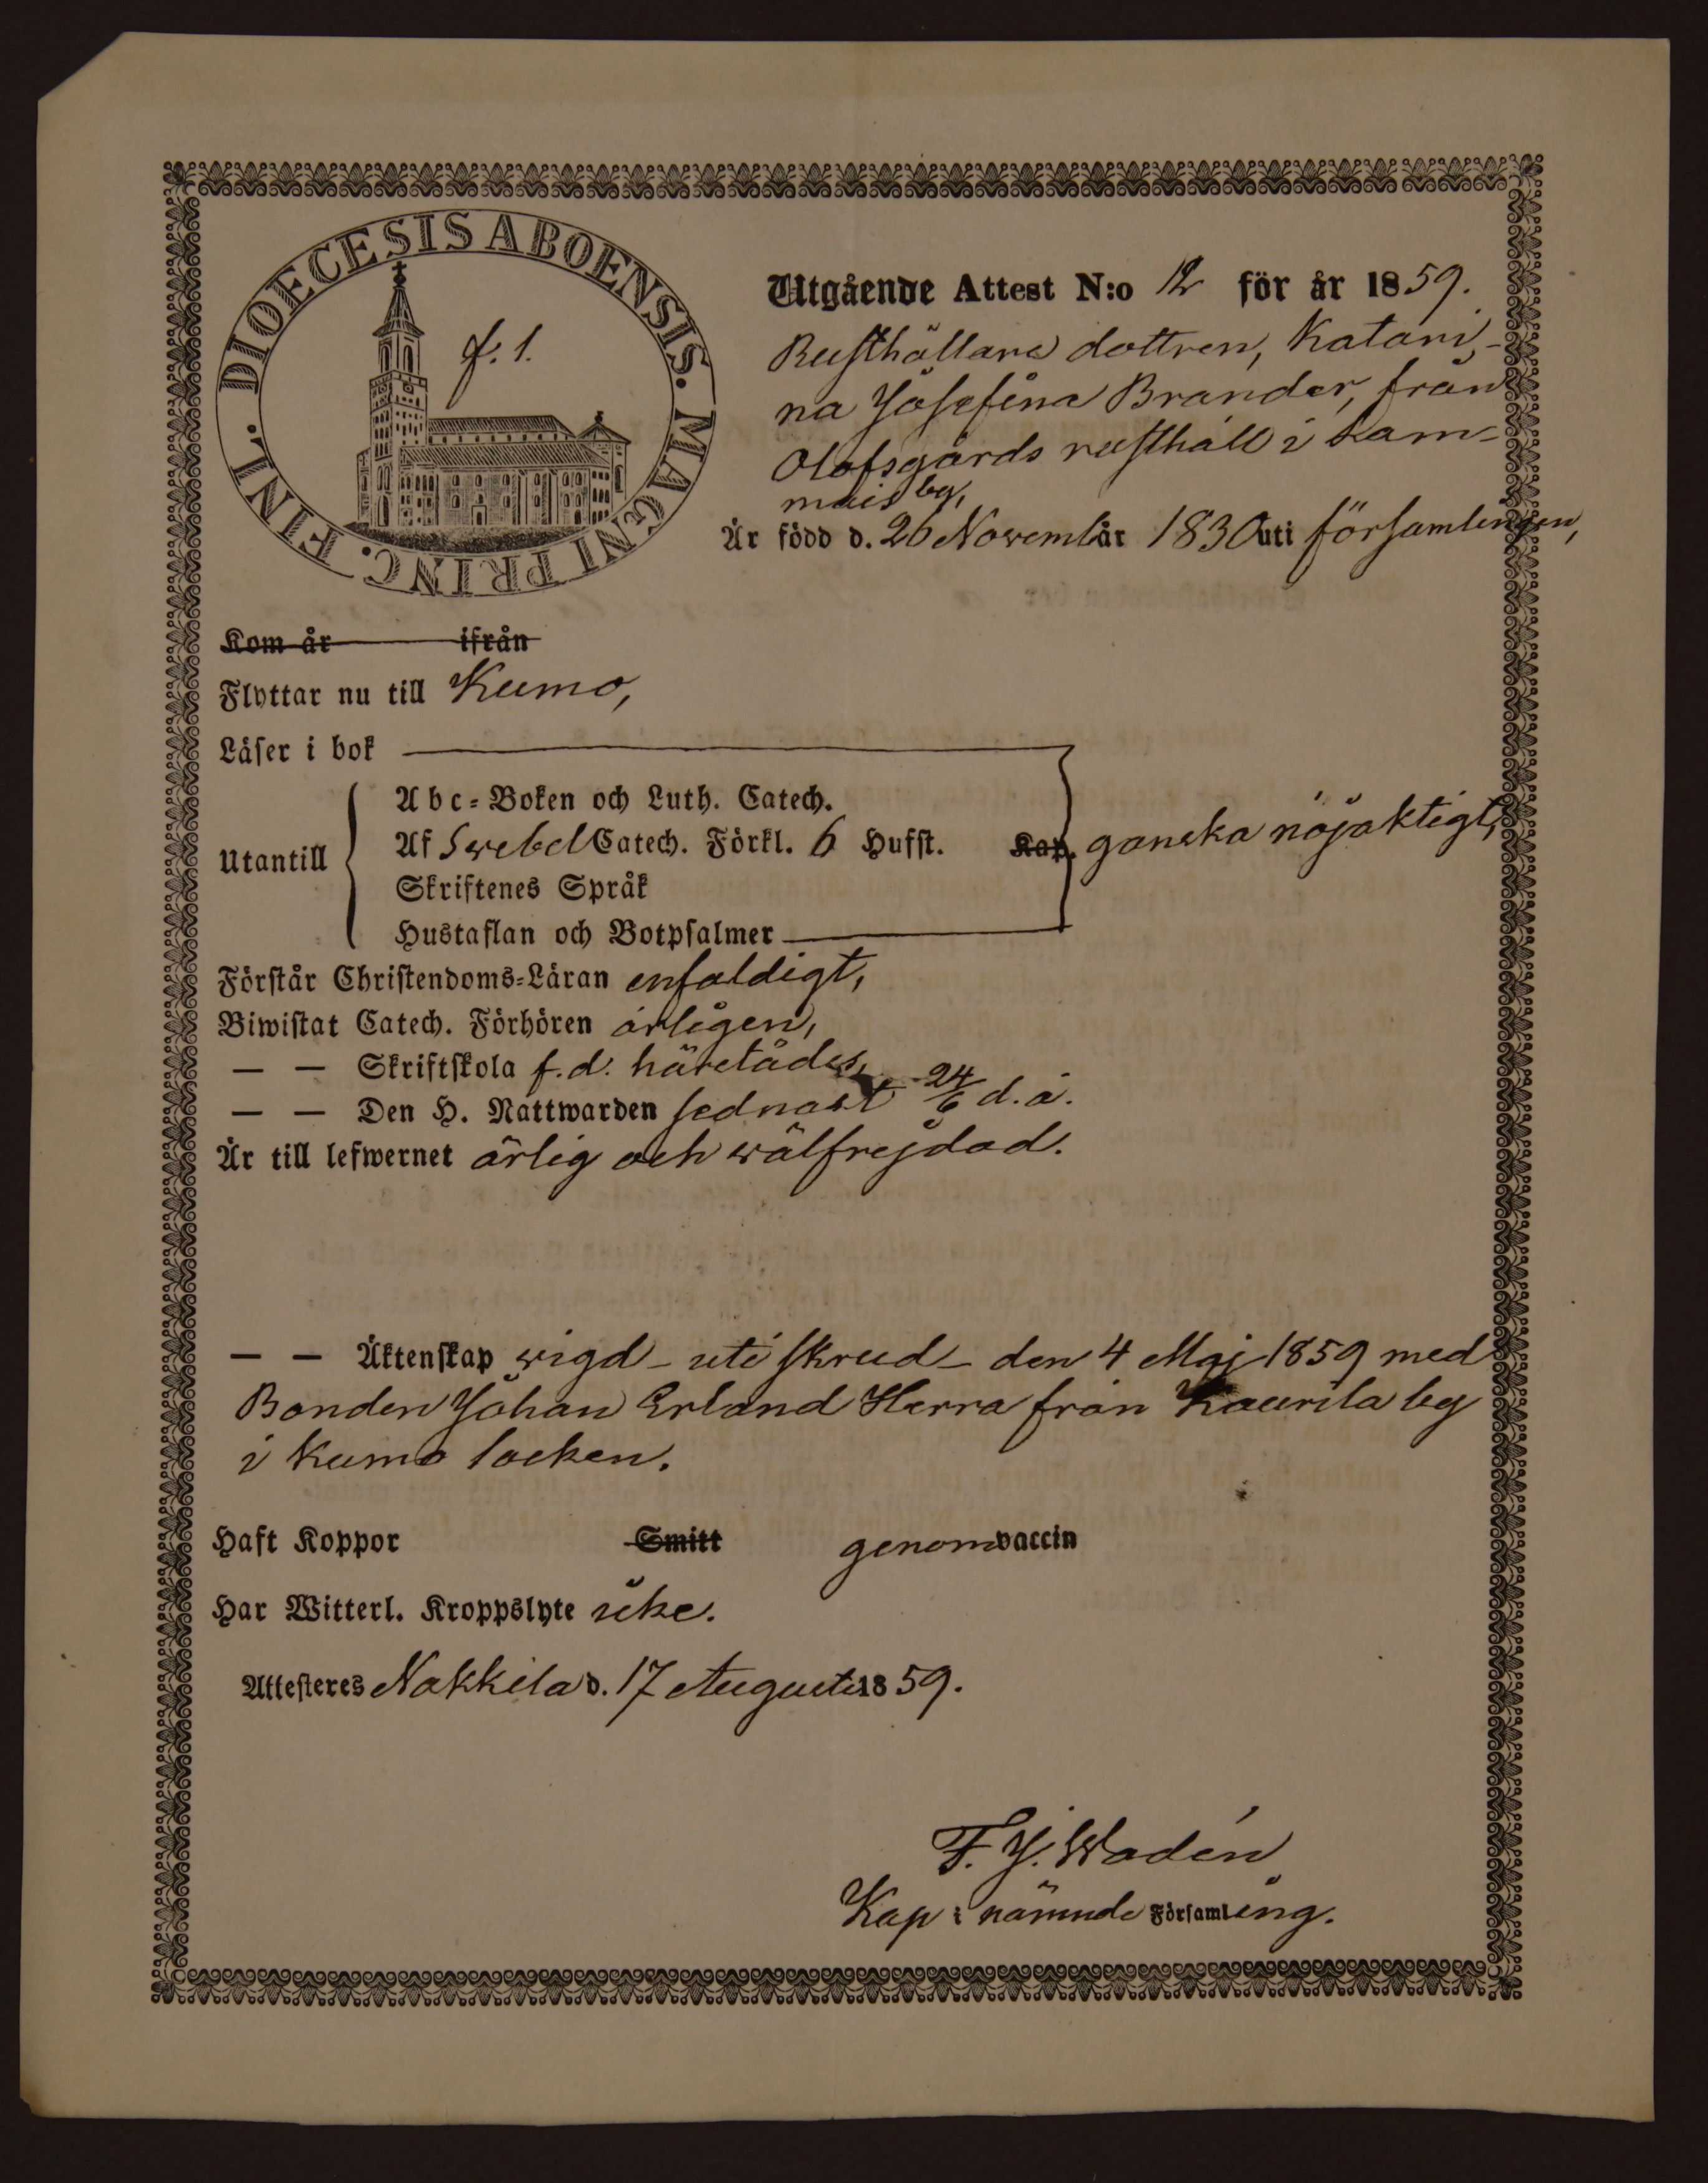 DIOECESIS ABOENSIS. MAGNI PRINC. FINL.
f. 1.
Utgående Attest N:o 12 för år 1859.
Rusthållare dottren, Katari-
na Josefina Brander, från
Olofsgårds rusthåll i Kam-
mais by,
Är född d. 26 Novemb år 1830 uti församlingen,
Kom år ifrån
Flyttar nu till Kumo,
Läser i bok
Utantill
Abc-Boken och Luth. Catech.
Af Swebel Catech. Förkl. 6 Hufst. Kap. ganska nöjaktigt,
Skriftenes Språk
Hustaflan och Botpsalmer
Förstår Christendoms-Läran enfaldigt,
Biwistat Catech. Förhören årligen,
— — Skriftskola f.d. härstädes,
— — Den H. Nattwarden sednast 24/6 d.å.
Är till lefwernet ärlig och wälfrejdad.
— — Äktenskap wigd - uti skrud - den 4 Maj 1859 med
Bonden Johan Erland Herra från Kaurila by
i Kumo socken.
Haft Koppor Smitt genom vaccin
Har Witterl. Kroppslyte icke.
Attesteres Nakkila d. 17 Augusti 1859.
F. J. Wadén
Kap i nämnde Församling.